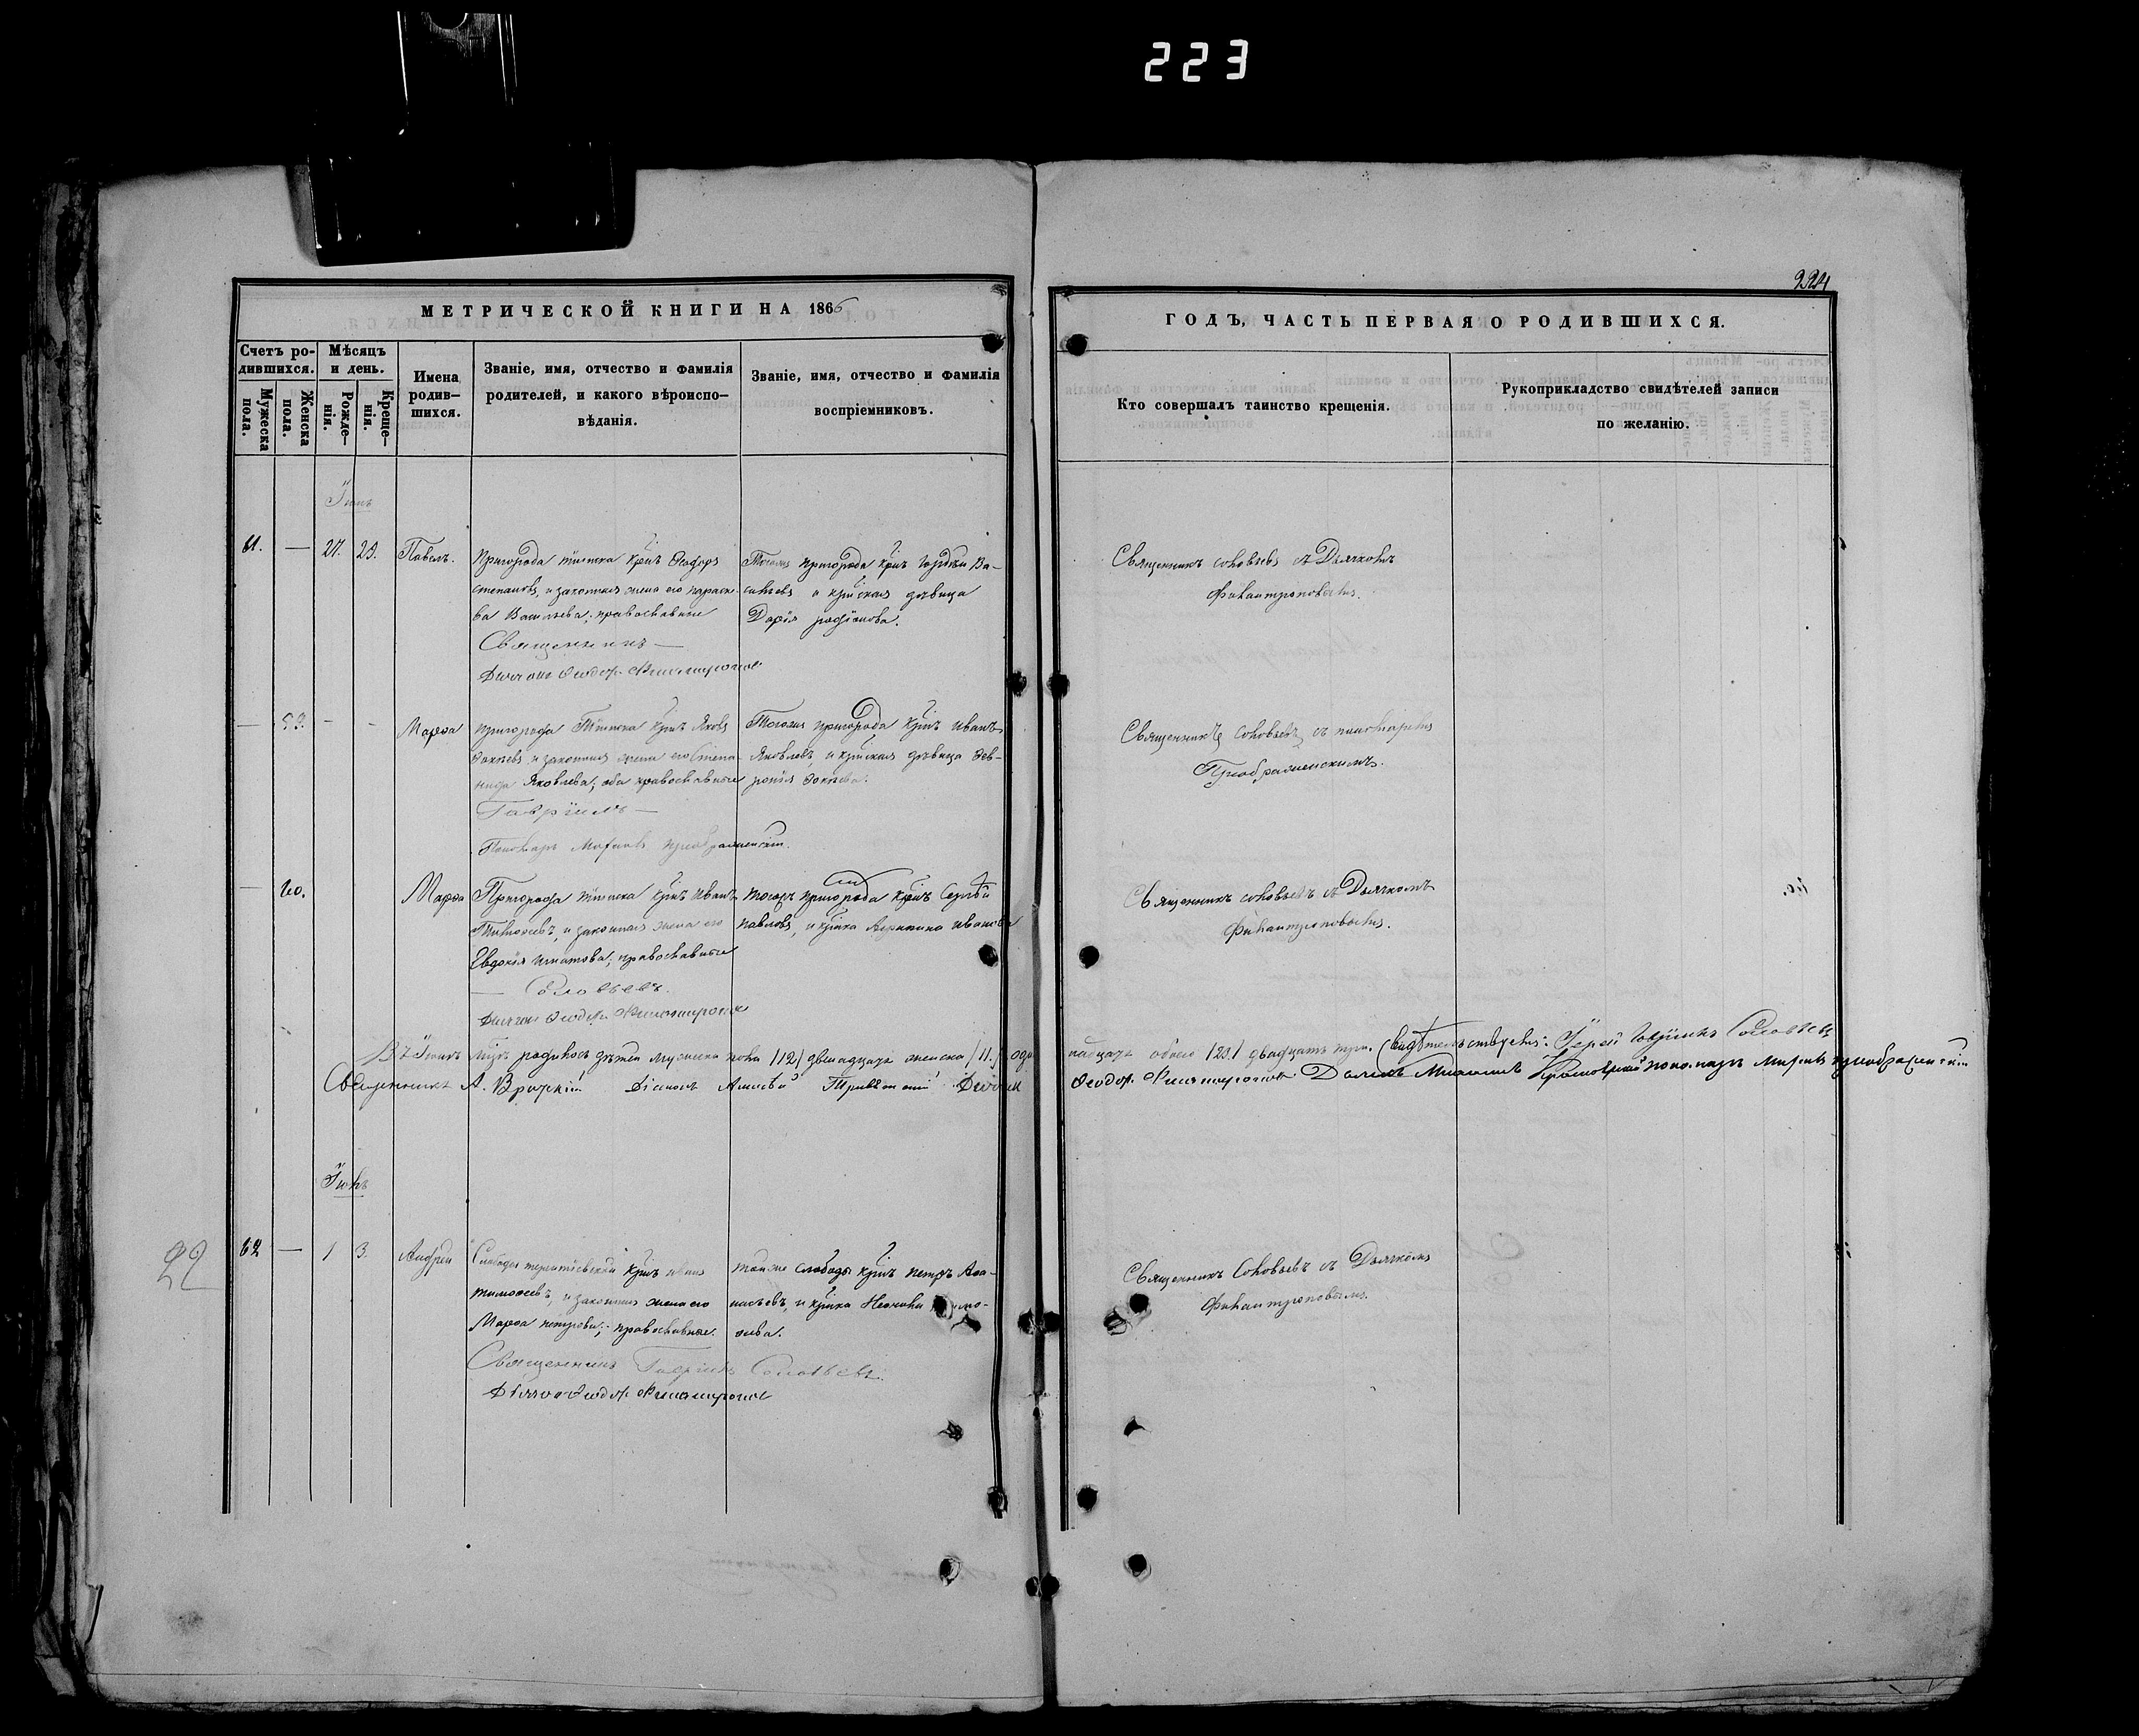 223
224
МЕТРИЧЕСКОЙ КНИГИ НА 1866
ГОДЪ, ЧАСТЬ ПЕРВАЯ О РОДИВШИХСЯ.
Счетъ ро-
дившихся.
Мужеска
пола.
Женска
пола.
Мѣсяцъ
и день.
Рожде-
нія.
Креще-
нія.
Имена
родив-
шихся.
Званіе, имя, отчество и фамилія
родителей, и какого вѣроиспо-
вѣданія.
Званіе, имя, отчество и фамилія
воспріемниковъ.
Кто совершалъ таинство крещенія.
Рукоприкладство свидѣтелей записи
по желанію.
Іюнь
61. — 27. 29. Павелъ.
Пригорода Тіинска крнъ Ѳеодоръ
Степановъ, и законная жена его Параск-
ва Васильева; православные
Священникъ —
Дьячокъ Ѳеодоръ Филантроповъ
Тогоже пригорода крнъ
и крнская дѣвица
Дарія родіонова.
Священникъ Соловьевъ съ Дьячкомъ
Филантроповымъ.
— 59. - - Марѳа
пригорода Тіинска крнъ Яковъ
и законная жена его Степа-
нида Яковлева; оба православные
Гавріилъ —
Пономарь Преображенскій.
Тогоже пригорода крнъ Иванъ
Яковлевъ, и крнская дѣвица Фев-
ронія
Священникъ Соловьевъ съ пономаремъ
Преображенскимъ.
— 60. Марѳа
Пригорода Тіинска крнъ Иванъ
Тимоѳеевъ, и законная жена его
Евдокія Игнатова; православные
— Соловьевъ.
Дьячокъ Ѳеодоръ Филантроповъ
тогоже пригорода крнъ Сергѣй
Павловъ, и крнка Агрипина Иванова
Священникъ Соловьевъ съ Дьячкомъ
Филантроповымъ.
60.
Въ Іюнѣ мцѣ родилось дѣтей мужеска пола /12/ двенадцать женска /11./ оди
надцать обоего /23./ двадцать три. Свидѣтельствуемъ: Іерей Гавріилъ Соловьевъ
Священникъ А. Діаконъ Алексѣй Дьячокъ
Ѳеодоръ Филантроповъ Дьячекъ Михаилъ пономарь Преображенскій
Іюль
22
62 — 1 3. Андрей
Слободы крнъ Иванъ
Тимоѳеевъ, и законная жена его
Марѳа петрова; православные.
Священникъ Гавріилъ Соловьевъ.
Дьячокъ Ѳеодоръ Филантроповъ
тойже слободы крнъ петръ Аѳа-
насьевъ, и крнка
Священникъ Соловьевъ съ Дьячкомъ
Филантроповымъ.